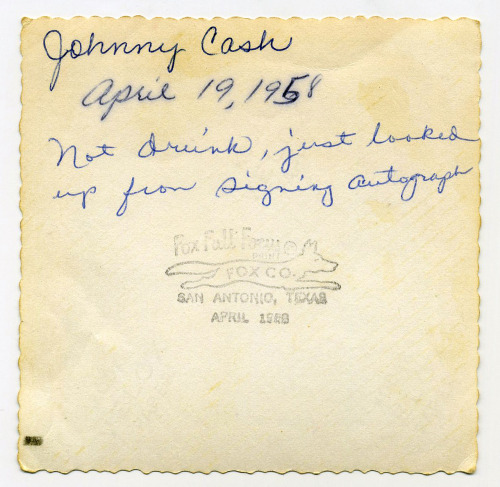 Johnny Cash
April 19, 1958
Not drunk, just looked
up from signing autograph
Fox Full Focus
PRINT
FOX CO.
SAN ANTONIO, TEXAS
APRIL 1958